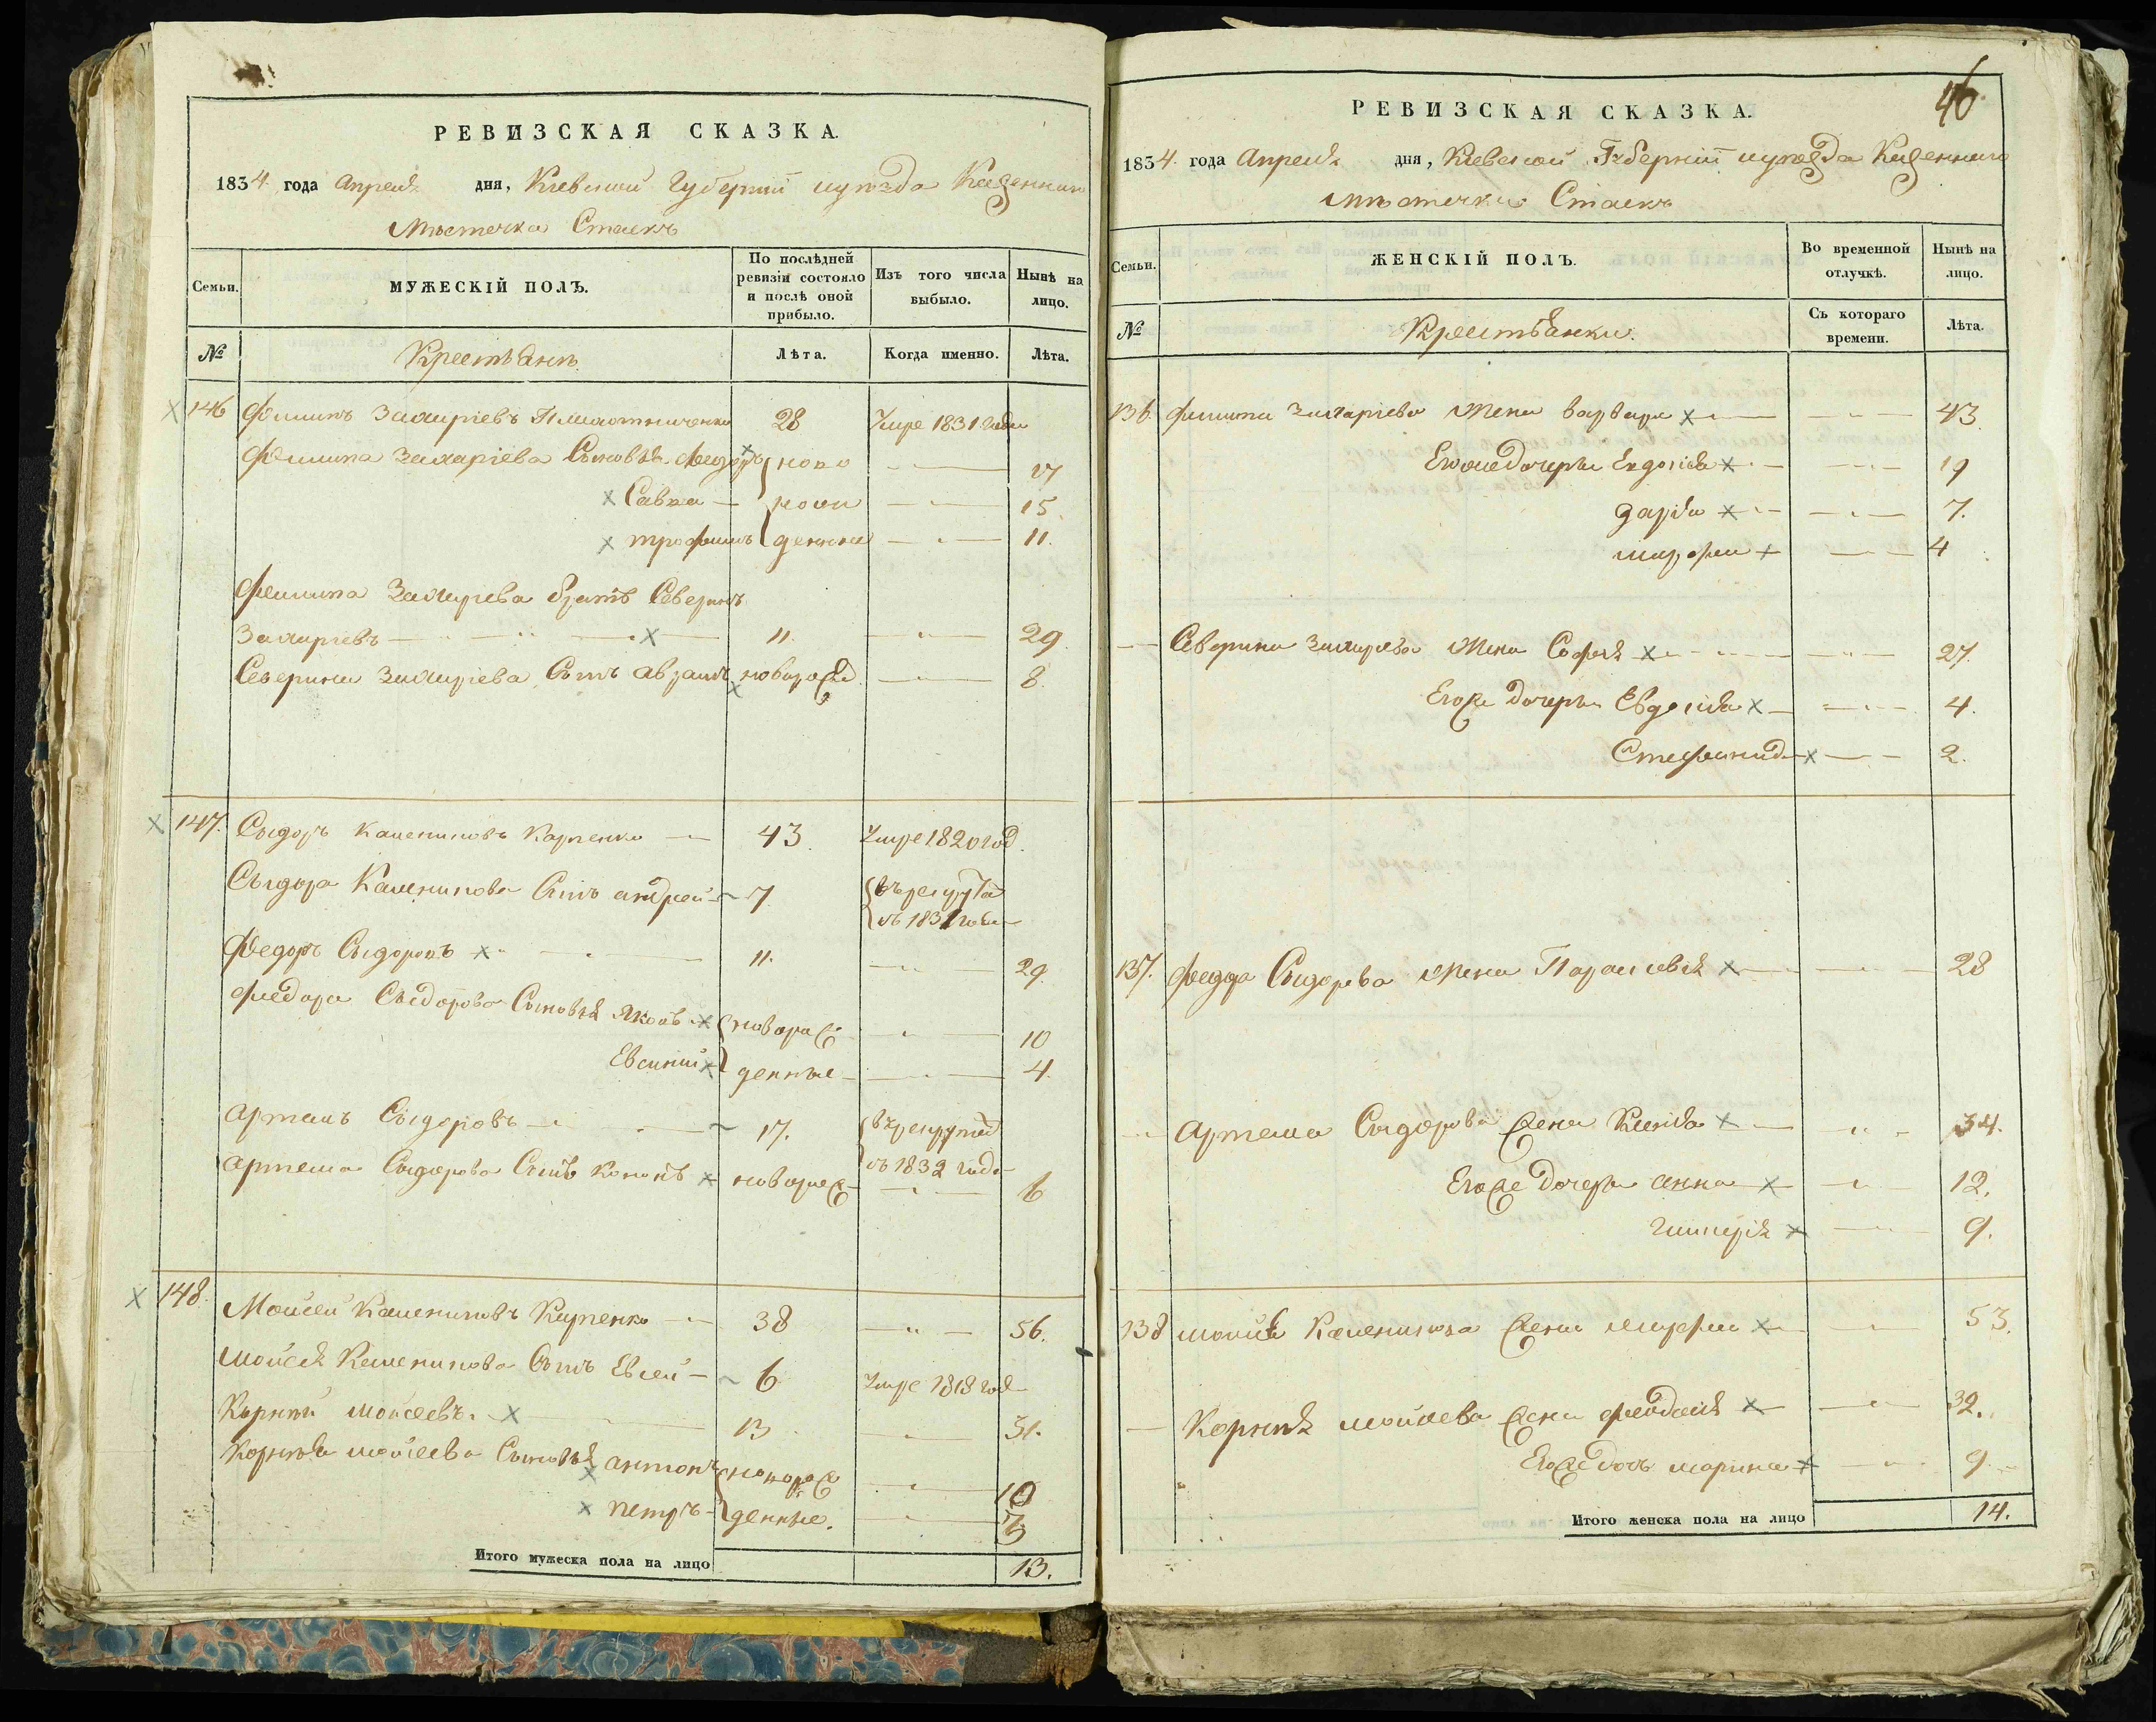 РЕВИЗСКАЯ СКАЗКА.
1834 года Апреля дня, Киевской Губернии и уезда Казеннаго
Местечка Стаекъ
Семьи. МУЖЕСКІЙ ПОЛЪ. По послѣдней ревизіи состояло и послѣ оной прибыло. Изъ того числа выбыло. Нынѣ на лицо.
№ Крестьянъ Лѣта. Когда именно. Лѣта.
146 Филипъ Захаріевъ 28 Умре 1831 года
Филипа Захаріева Сыновья Федоръ ново 17
Савка рож 15
Трофимъ денные 11.
Филипа Захарiева братъ Северинъ
Захарiевъ 11. 29.
Северина Захарiева Сынъ Авраамъ новорожд 8.
147. Сыдоръ Калениковъ Карпенко 43. Умре 1820 год.
Сыдора Каленикова Сынъ Андрей 7 въ рекрутах
въ 1831 года
Федоръ Сыдоровъ 11. 29.
Федора Сыдорова Сыновья Яковъ новорож 10
Евсикий денные 4.
Артемъ Сыдоровъ 17. в рекрутах
въ 1832 года
Артема Сыдорова Сынъ Кононъ новорож 6
148. Мойсей Калениковъ Карпенко 38 56.
Мойсея Каленикова Сынъ Евсей 6 Умре 1818 год
Корней Мойсеевъ 13 31.
Корнея Мойсеева Сыновья Антонъ новорож 10
Петръ денные. 3
Итого мужеска пола на лицо 13.
46.
РЕВИЗСКАЯ СКАЗКА.
1834. года Апреля дня, Киевской Губерніи и уезда Казеннаго
Местечка Стаекъ
Семьи. ЖЕНСКІЙ ПОЛЪ. Во временной отлучкѣ. Нынѣ на лицо.
№ Крестьянки. Съ котораго времени. Лѣта.
136. Филипа Захаріева Жена Варвара 43.
Егоже Дочери Евдокія 19
Дарья 7.
4
Северина Захарiева Жена Софія 27.
Егоже Дочери Евдокія 4.
Стефанида 2.
137. Федора Сыдорова Жена Параскевія 28
Артема Сыдорова Жена 34.
Егоже Дочери Анна 12.
9.
138 Мойсея Каленикова Жена 53.
Корнея Мойсеева Жена 32.
Егоже Дочь Марина 9.
Итого женска пола на лицо 14.